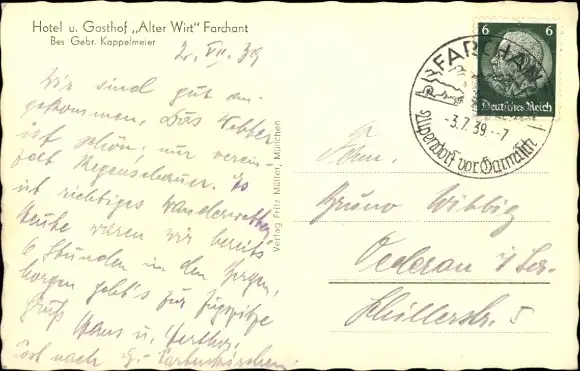 Hotel u. Gasthof „Alter Wirt" Farchant
Bes. Gebr. Kappelmeier
2. VII. 39
Wir sind gut an-
gekommen. Das Wetter
ist schön, nur verein-
zelt Regenschauer. Es
ist richtiges Wanderwetter
Heute waren wir bereits
6 Stunden in den Bergen,
morgen geht's zur Zugspitze
Gruß Hans u. Herthy.
Post nach G.-Partenkirchen.
Verlag Fritz Müller, München
6 6
Deutsches Reich
FARCHANT
-3.7.39.--7
Alpendorf vor Garmisch
Fam.
Bruno Wittig
Oederan i/Sa.
Schillerstr. 5